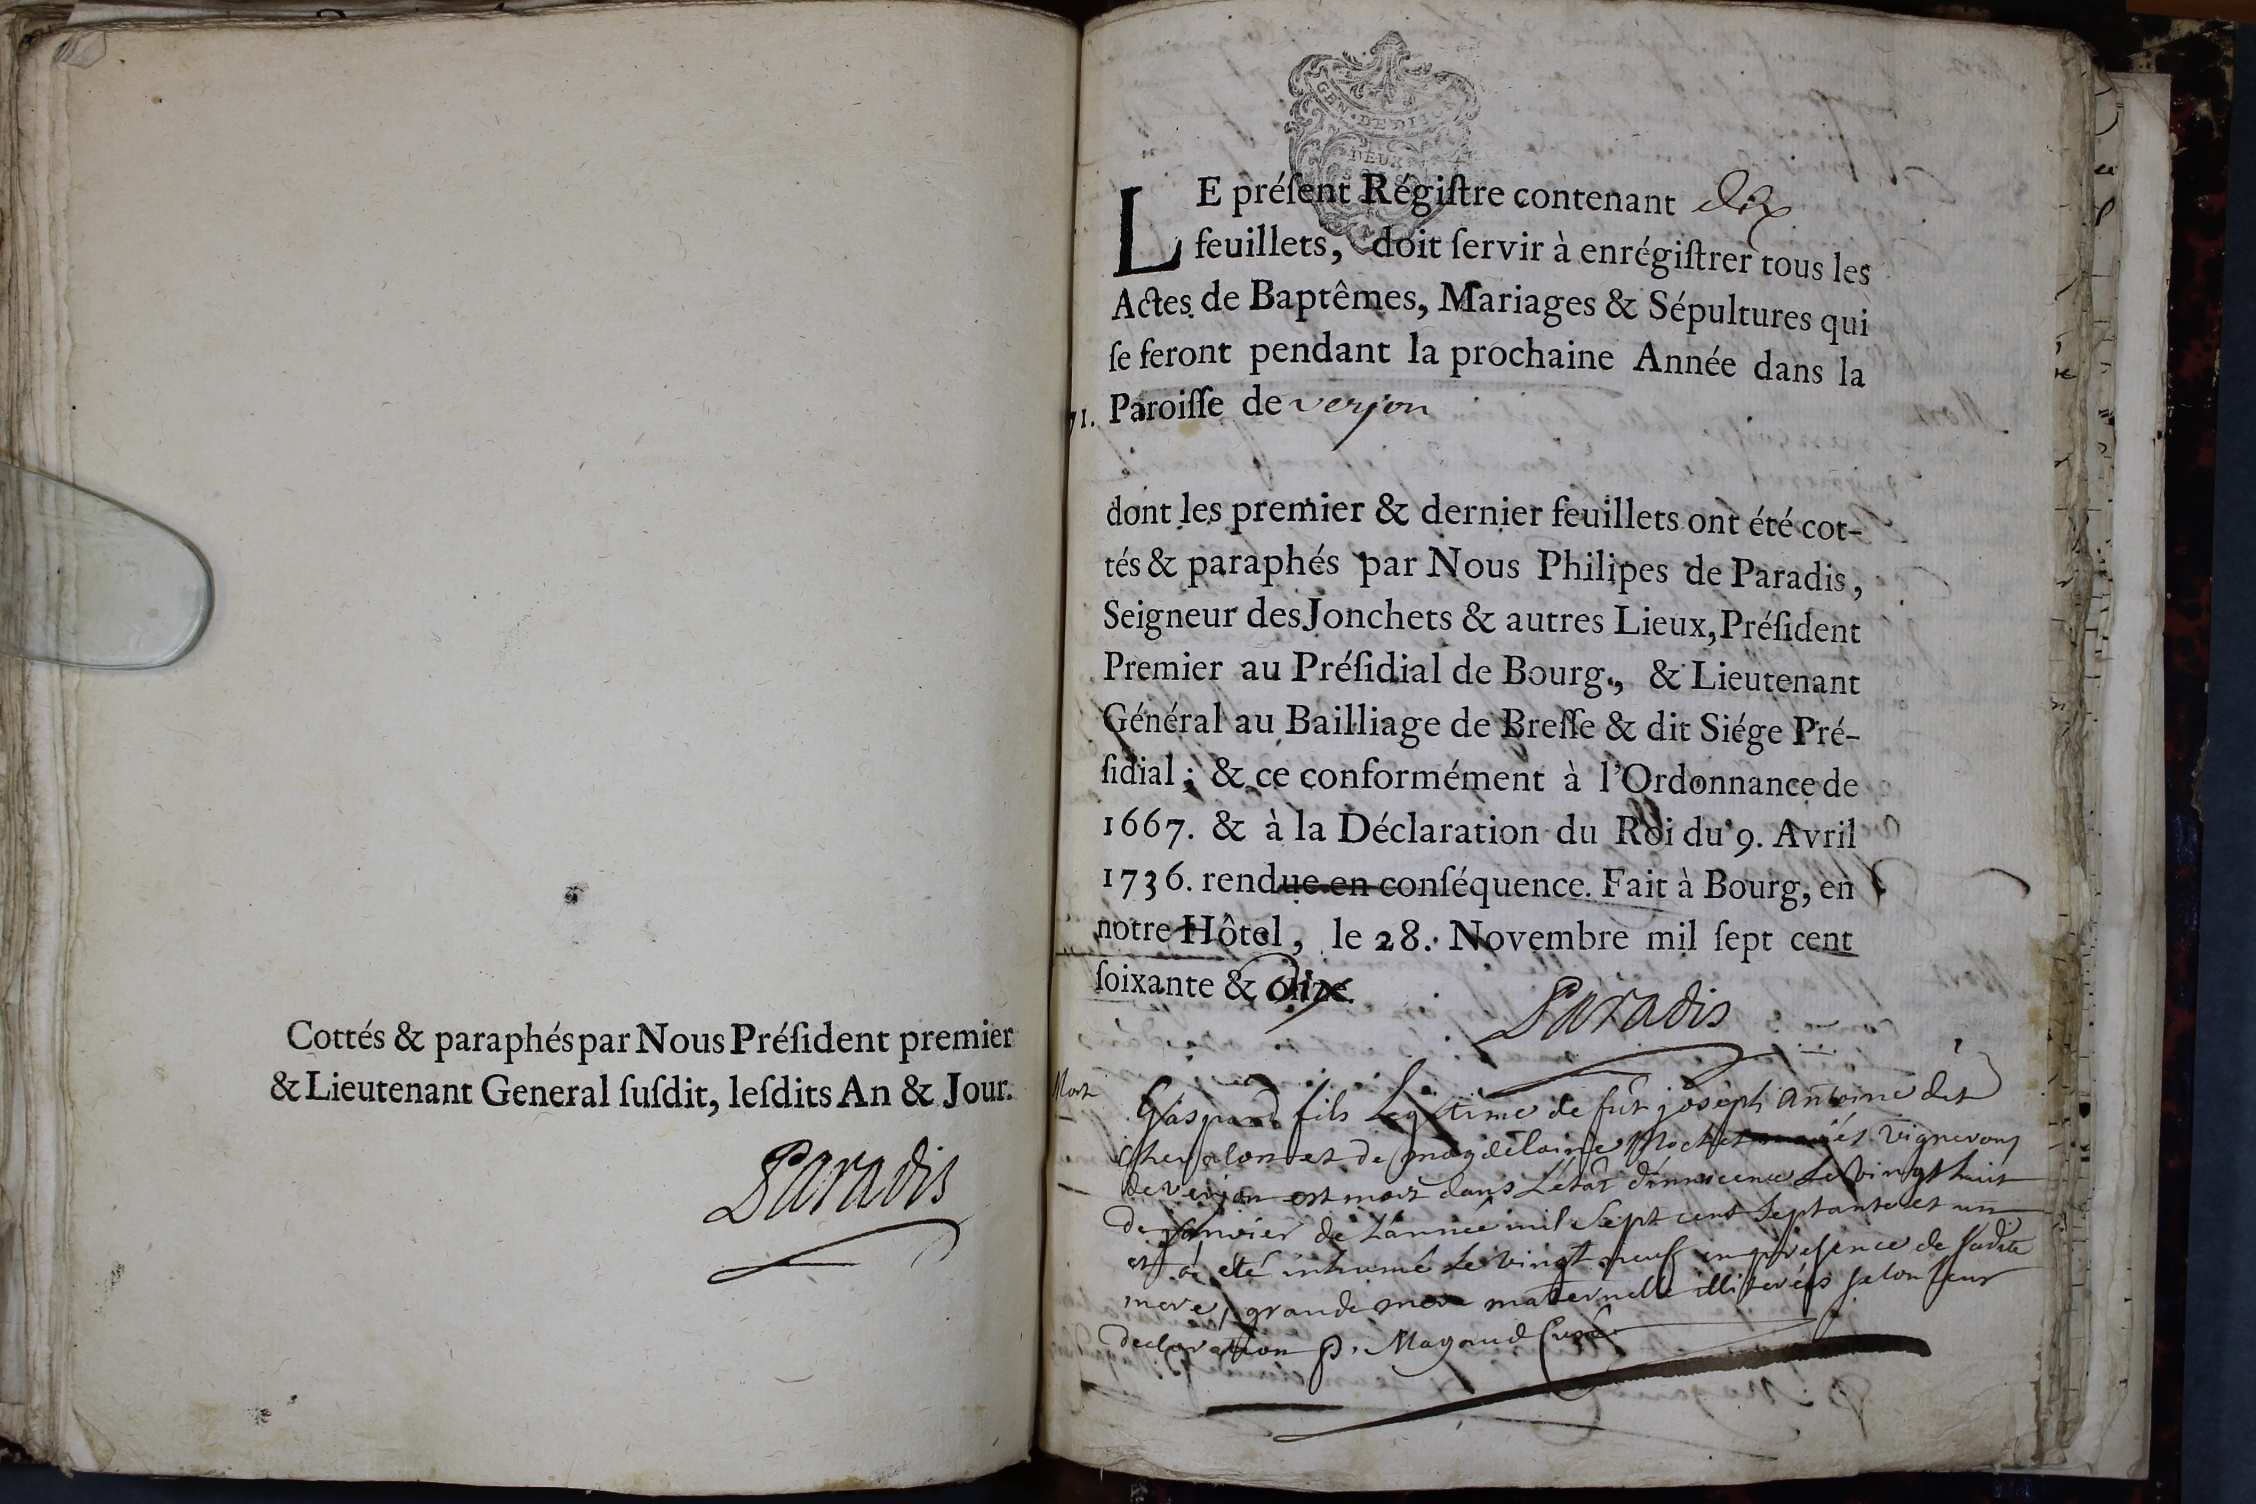 Cottés & paraphés par Nous Préſident premier
& Lieutenant General ſuſdit, leſdits An & Jour.
Paradis
GEN. DE DIJON
DEUX
LE préſent Régiſtre contenant dix
feuillets, doit ſervir à enrégiſtrer tous les
Actes de Baptêmes, Mariages & Sépultures qui
ſe feront pendant la prochaine Année dans la
71. Paroiſſe de verjon
dont les premier & dernier feuillets ont été cot-
tés & paraphés par Nous Philipes de Paradis,
Seigneur des Jonchets & autres Lieux, Préſident
Premier au Préſidial de Bourg., & Lieutenant
Général au Bailliage de Breſſe & dit Siége Pré-
ſidial; & ce conformément à l'Ordonnance de
1667. & à la Déclaration du Roi du 9. Avril
1736. rendue en conſéquence. Fait à Bourg, en
notre Hôtel, le 28. Novembre mil ſept cent
ſoixante & dix
Paradis
Mort
Gaspard fils Legitime de fût joseph Antoine dit
et de magdelaine Mochet vignerons
de verjon est mort dans L'état d'innocence Le vingt huit
De janvier de L'année mil Sept cent Septante et un
et a été inhumé Le vingt neuf en presence de Sadite
mere, grande mere maternelle illiterées selon leur
declaration P. Magaud Curé